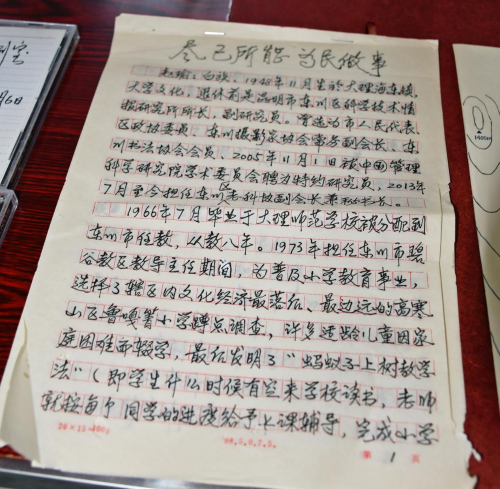 尽己所能 为民做事
赵瑜：白族、1948年11月生於大理海东镇、
大学文化、退休前是昆明市东川区科学技术情
报研究所所长、副研究员。曾选为市人民代表、
区政协委员、东川摄影家协会常务副会长、东
川书法协会会员、2005年11月1日被中国管理
科学研究院学术委员会聘为特约研究员、2013年
7月至今担任东川区老科协副会长兼秘书长。
1966年7月毕业于大理师范学校被分配到
东川市任教，从教八年。1973年担任东川市
谷教区教导主任期间，为普及小学教育事业，
选择了辖区内文化经济最落后、最边远的高寒
山区鲁嘎箐小学蹲点调查，许多适龄儿童因家
庭困难而辍学，最后发明了"蚂蚁子上树教学
法"（即学生什么时候有空来学校读书，老师
就按每个同学的进度给予上课辅导，完成小学
20×15=300
第 1 页
1400m